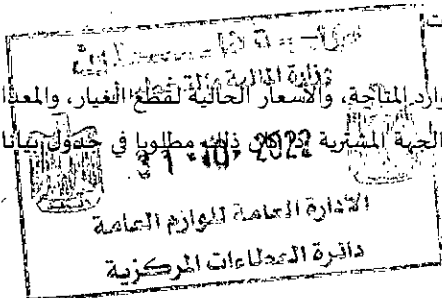 ت
وزارة المالية
وارد المتاحة، والأسعار الحالية لقطع الغيار، والمعدا
الجهة المشترية إذا كان ذلك مطلوبا في جدول بيانا
31 -10- 2022
الإدارة العامة للوازم العامة
دائرة العطاءات المركزية